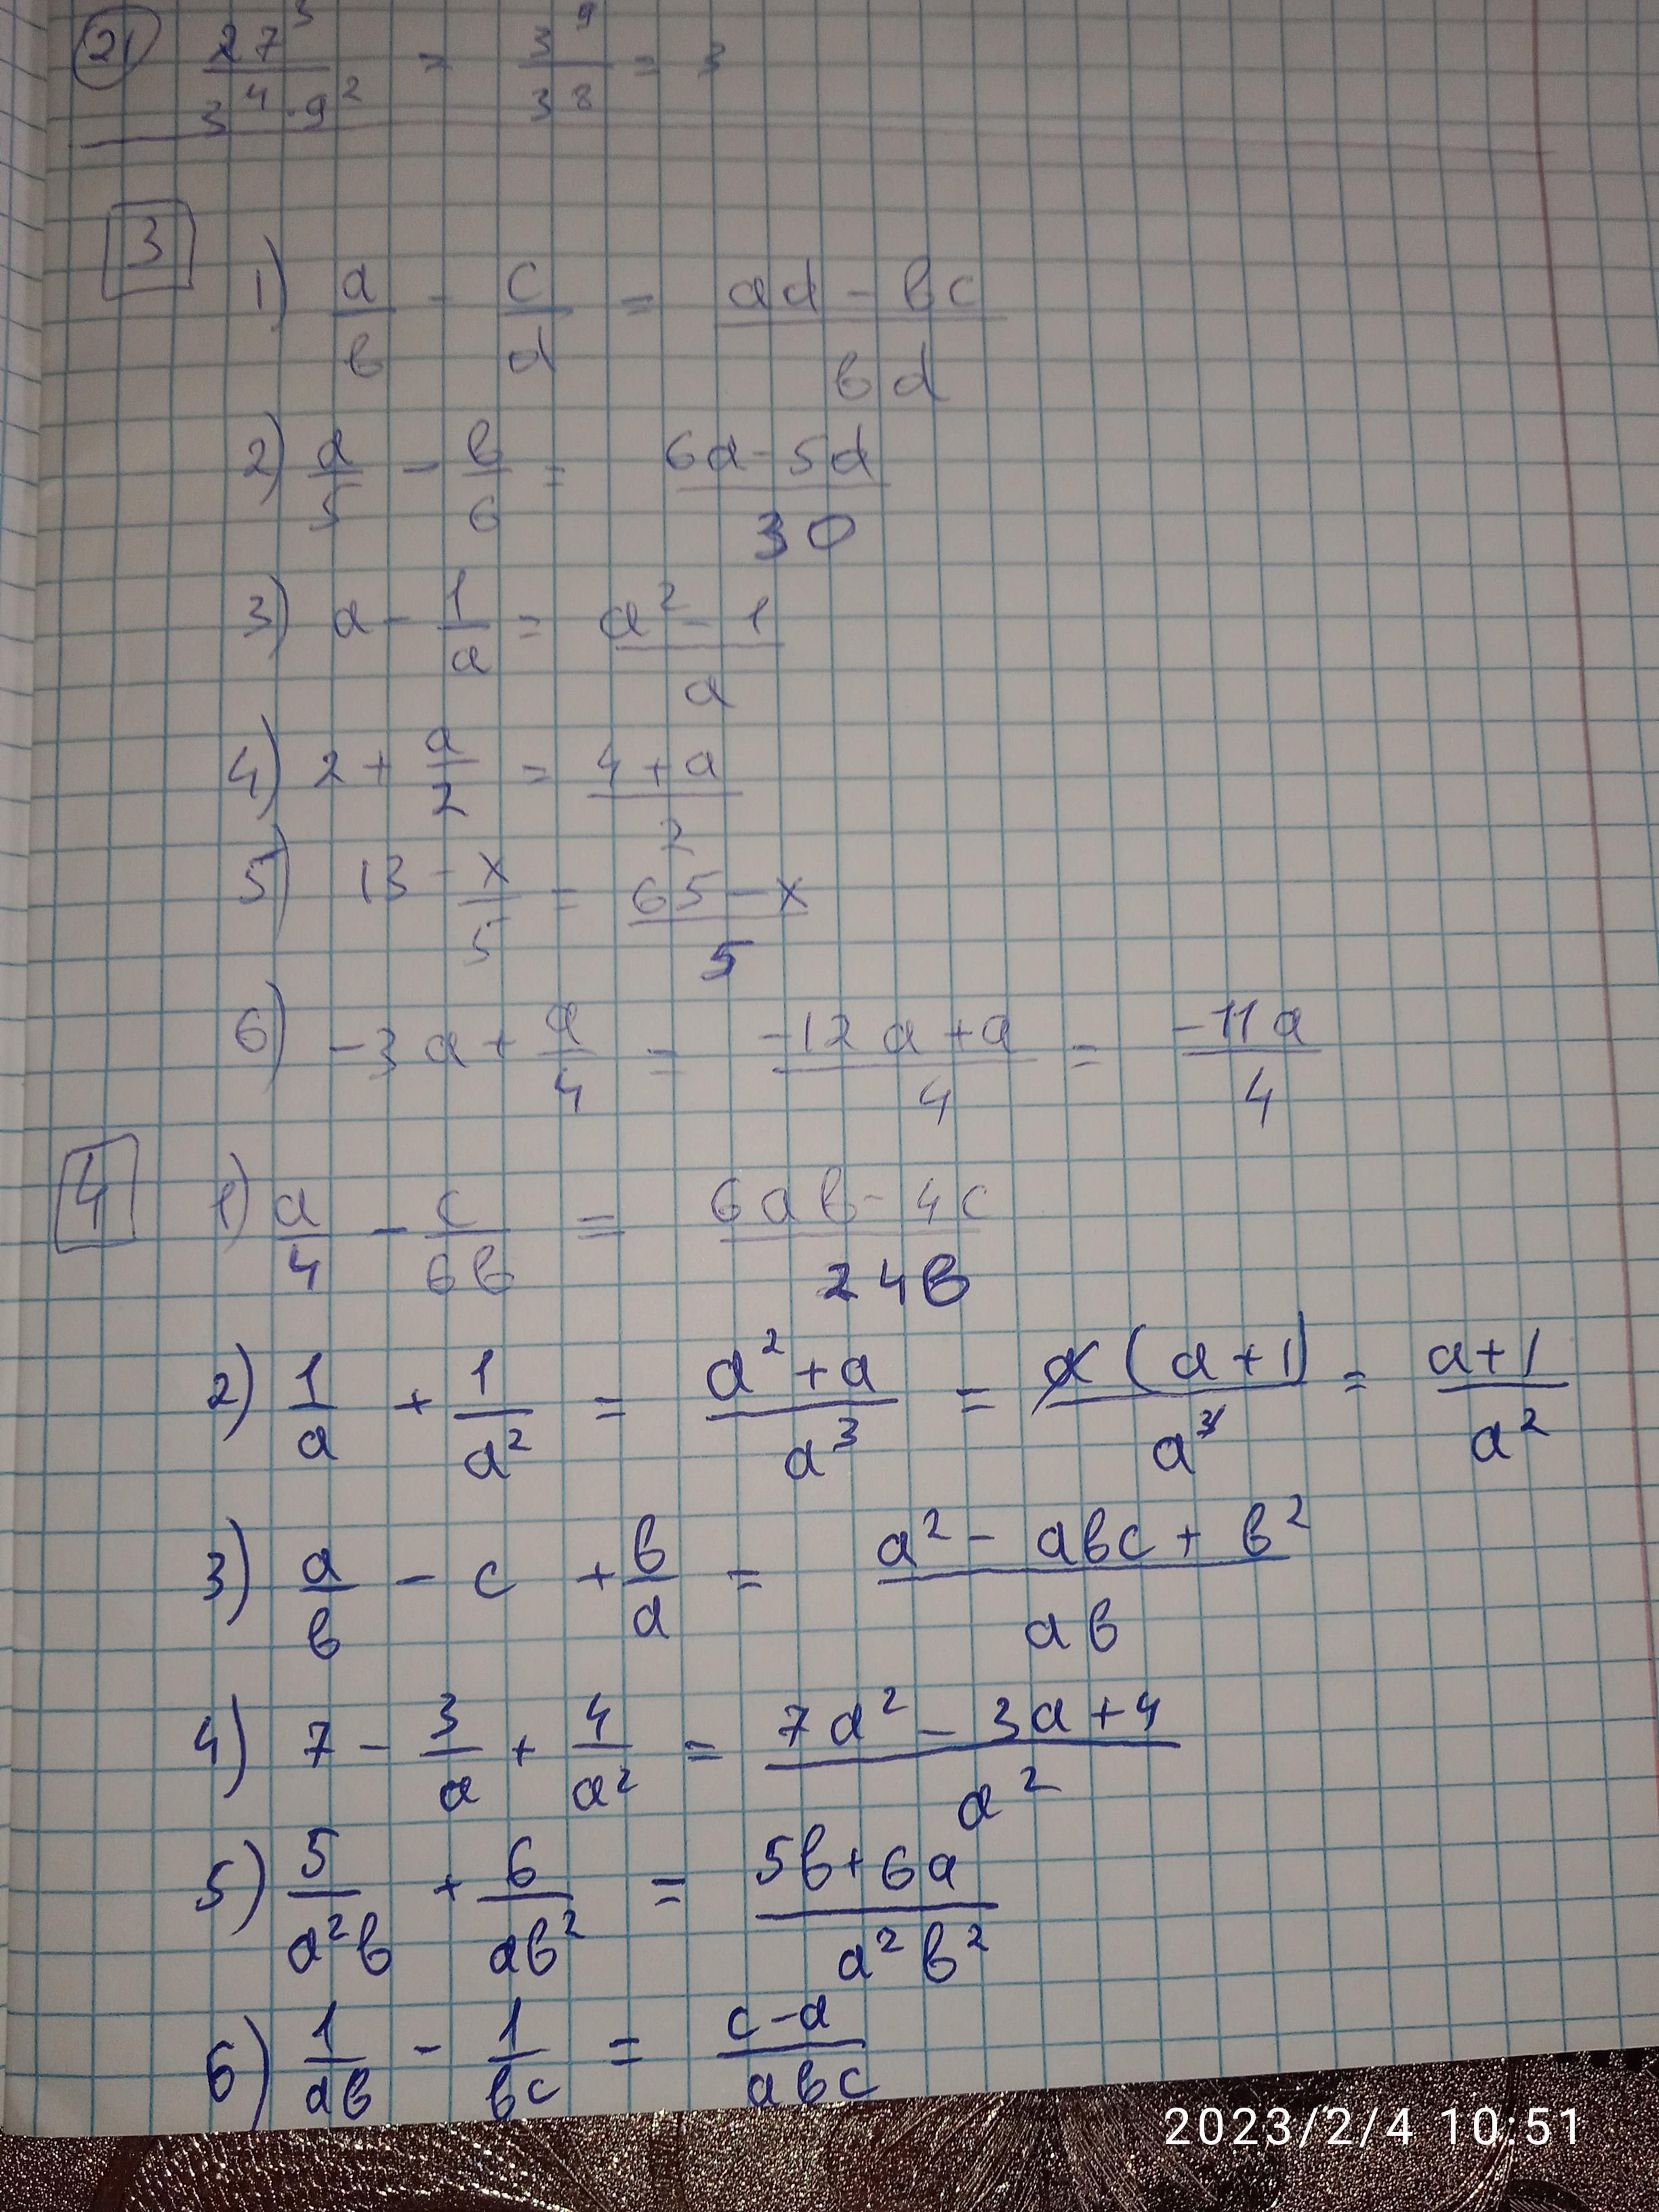 21 27³/(3⁴·9²) = 3⁹/3⁸ = 3
3
1) a/в - c/d = (ad - вc)/(вd)
2) a/5 - в/6 = (6a - 5a)/30
3) a - 1/a = (a² - 1)/a
4) 2 + a/2 = (4 + a)/2
5) 13 - x/5 = (65 - x)/5
6) -3a + a/4 = (-12a + a)/4 = -11a/4
4
1) a/4 - c/(6в) = (6aв - 4c)/(24в)
2) 1/a + 1/a² = (a² + a)/a³ = a(a + 1)/a³ = (a + 1)/a²
3) a/в - c + в/a = (a² - aвc + в²)/(aв)
4) 7 - 3/a + 4/a² = (7a² - 3a + 4)/a²
5) 5/(a²в) + 6/(aв²) = (5в + 6a)/(a²в²)
6) 1/(aв) - 1/(вc) = (c - a)/(aвc)
2023/2/4 10:51